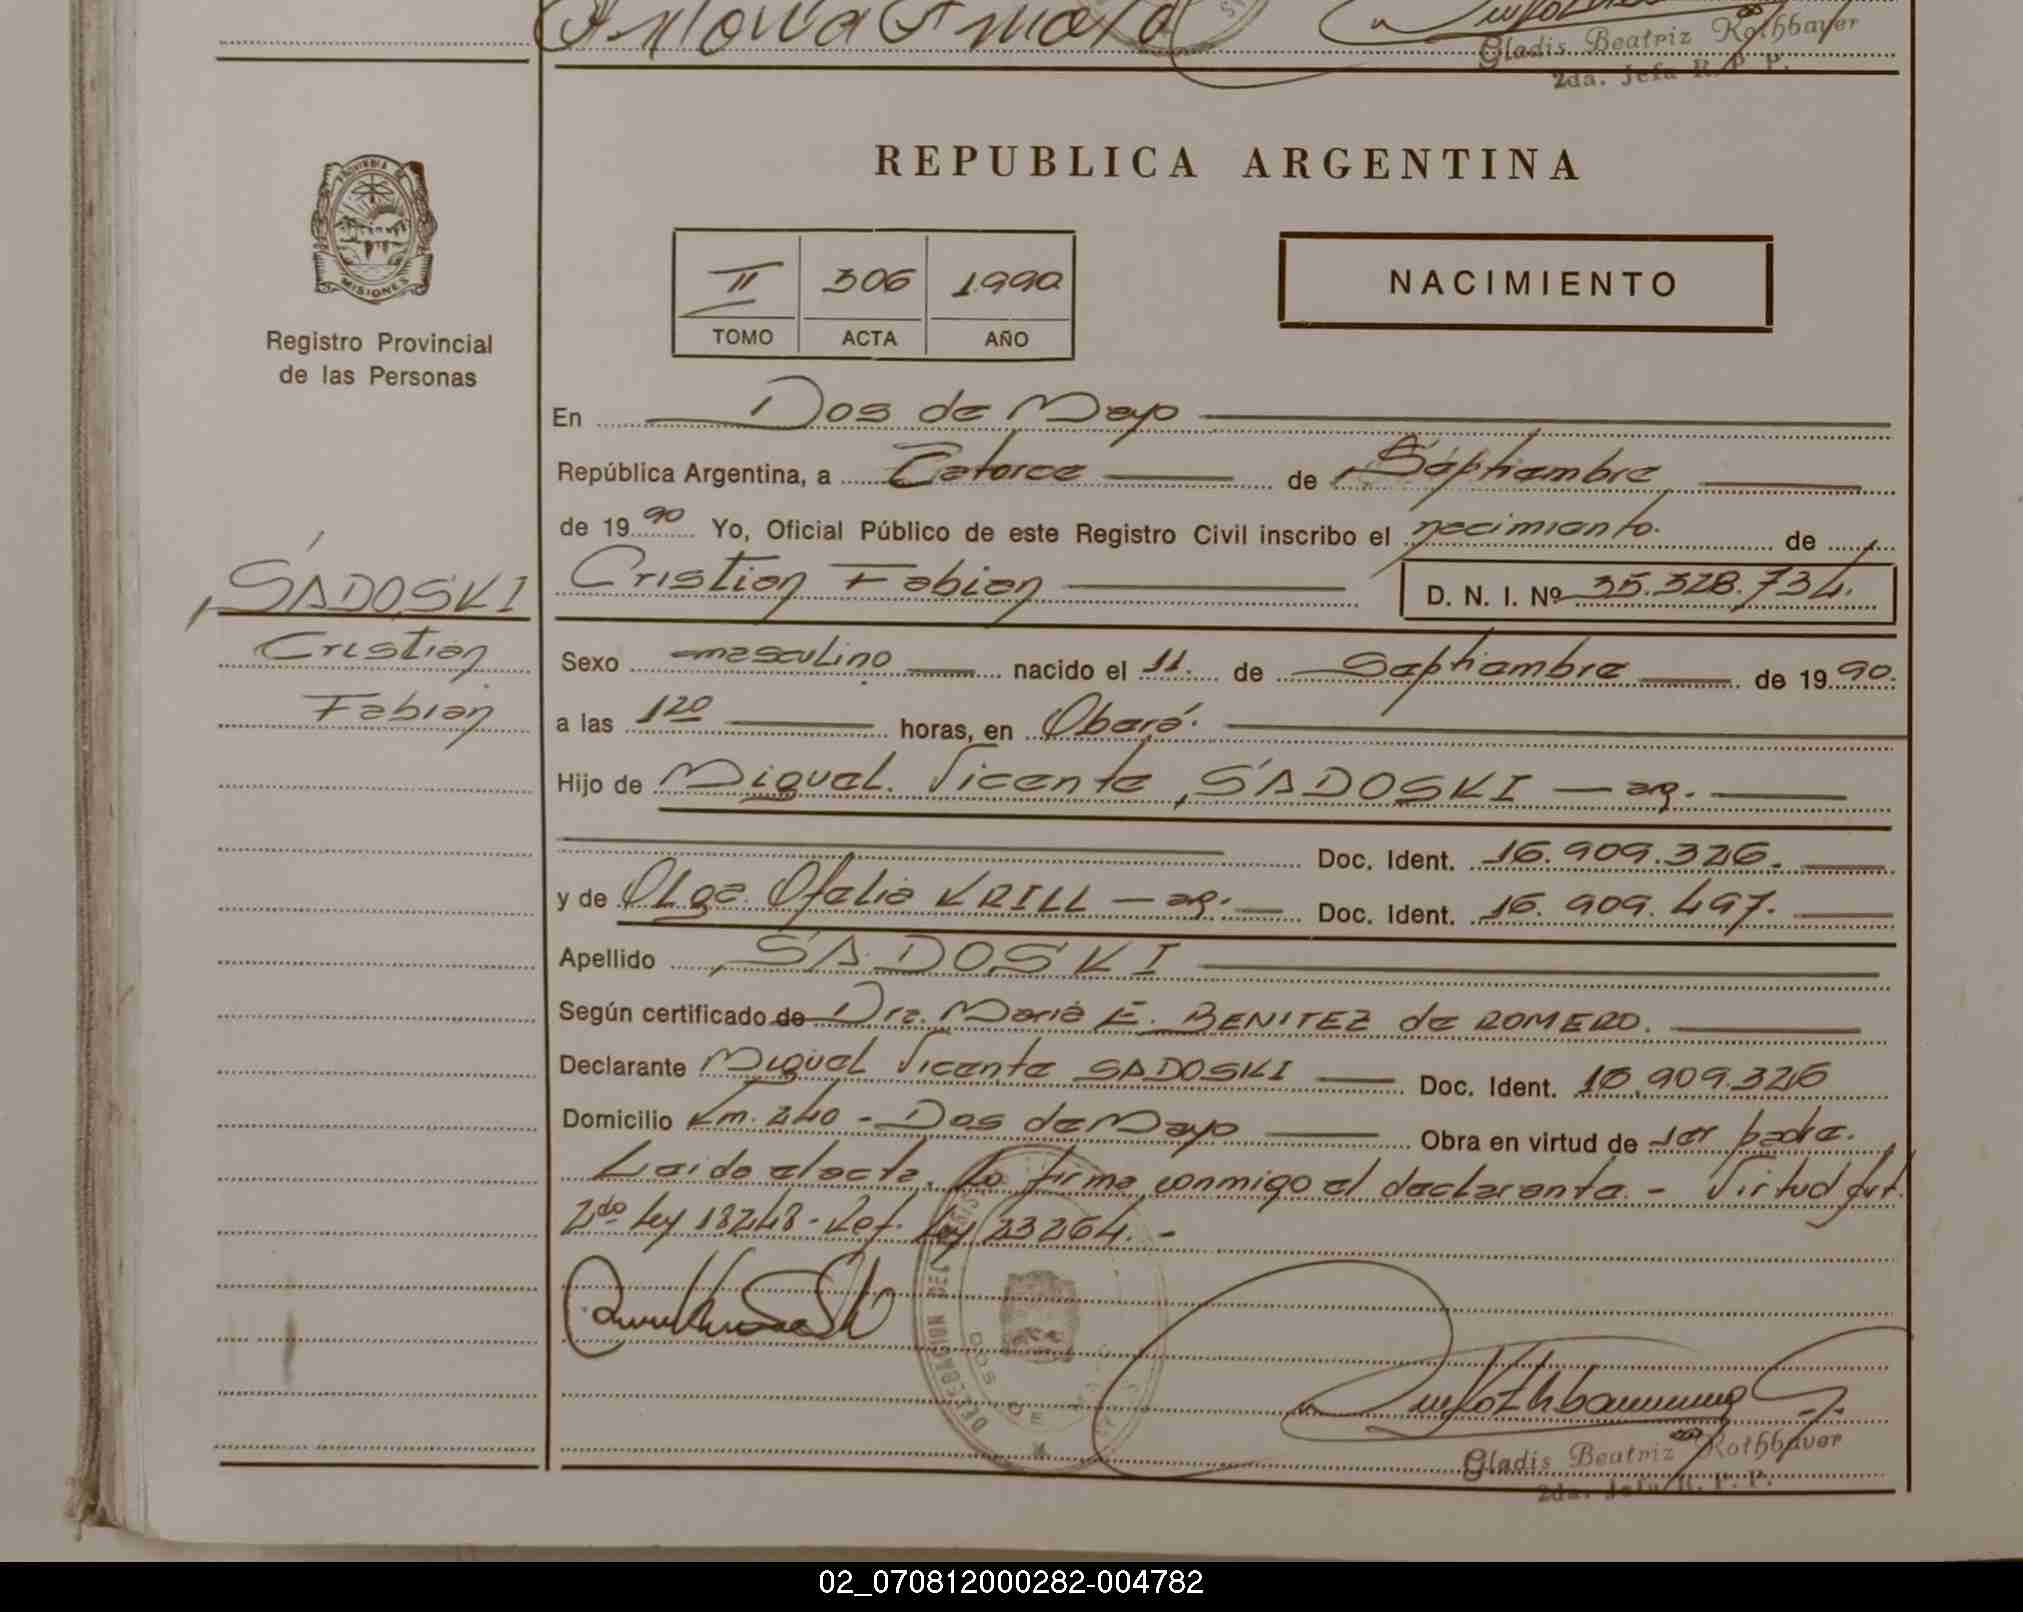 Gladis Beatriz Rothbaver
2da. Jefa R. P. P.
PROVINCIA DE
MISIONES
Registro Provincial
de las Personas
REPUBLICA ARGENTINA
II 306 1990
TOMO ACTA AÑO
NACIMIENTO
En Dos de Mayo
República Argentina, a Catorce de Septiembre
de 1990 Yo, Oficial Público de este Registro Civil inscribo el necimiento. de
SADOSKI
Cristian
Fabian
Cristian Fabian D. N. I. Nº 35.328.734.
Sexo masculino nacido el 11. de Septiembre de 1990.
a las 120 horas, en Oberá.
Hijo de Miguel Vicente SADOSKI — arg.
Doc. Ident. 16.909.326.
y de Olga Ofelia KRILL — arg. Doc. Ident. 16.909.497.
Apellido SADOSKI
Según certificado de Dra. Maria E. BENITEZ de ROMERO.
Declarante Miguel Vicente SADOSKI Doc. Ident. 16.909.326
Domicilio Km. 240 - Dos de Mayo Obra en virtud de ser padre.
Leida el acta, la firma conmigo el declarante. - Virtud Art.
2do Ley 18248 - Ref. Ley 23264. -
DELEGACION DEL
DOS DE MAYO
Gladis Beatriz Rothbaver
2da. Jefa R. P. P.
02_070812000282-004782